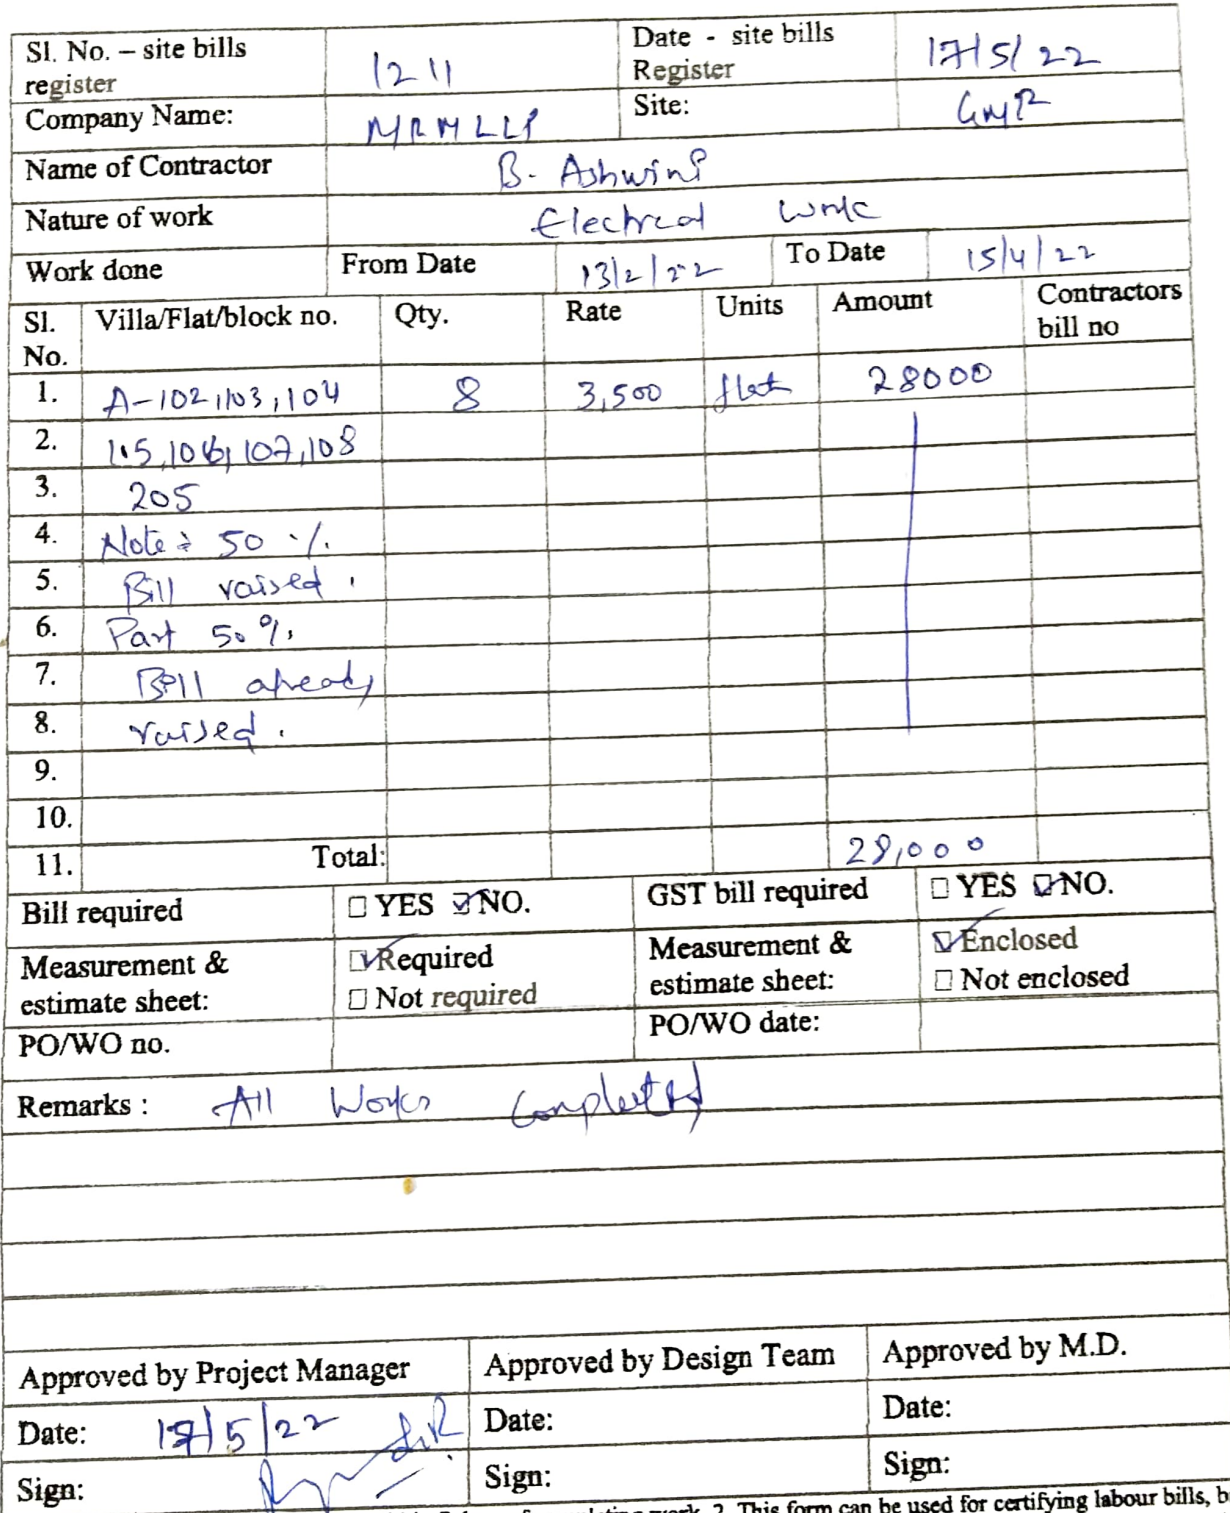 Sl. No. – site bills register 1211 Date - site bills Register 17/5/22
Company Name: MRMLLP Site: GMR
Name of Contractor B. Ashwini
Nature of work Electrical Work
Work done From Date 13/2/22 To Date 15/4/22
Sl. No. Villa/Flat/block no. Qty. Rate Units Amount Contractors bill no
1. A-102,103,104 8 3,500 flat 28000
2. 105,106,107,108
3. 205
4. Note: 50 %
5. Bill raised.
6. Part 50%
7. Bill already
8. raised.
9.
10.
11. Total: 28,000
Bill required ☐ YES ☑ NO. GST bill required ☐ YES ☑ NO.
Measurement & estimate sheet: ☑ Required ☐ Not required Measurement & estimate sheet: ☑ Enclosed ☐ Not enclosed
PO/WO no. PO/WO date:
Remarks : All Works Completed
Approved by Project Manager Approved by Design Team Approved by M.D.
Date: 17/5/22 Date: Date:
Sign: Sign: Sign:
work. 2. This form can be used for certifying labour bills, b